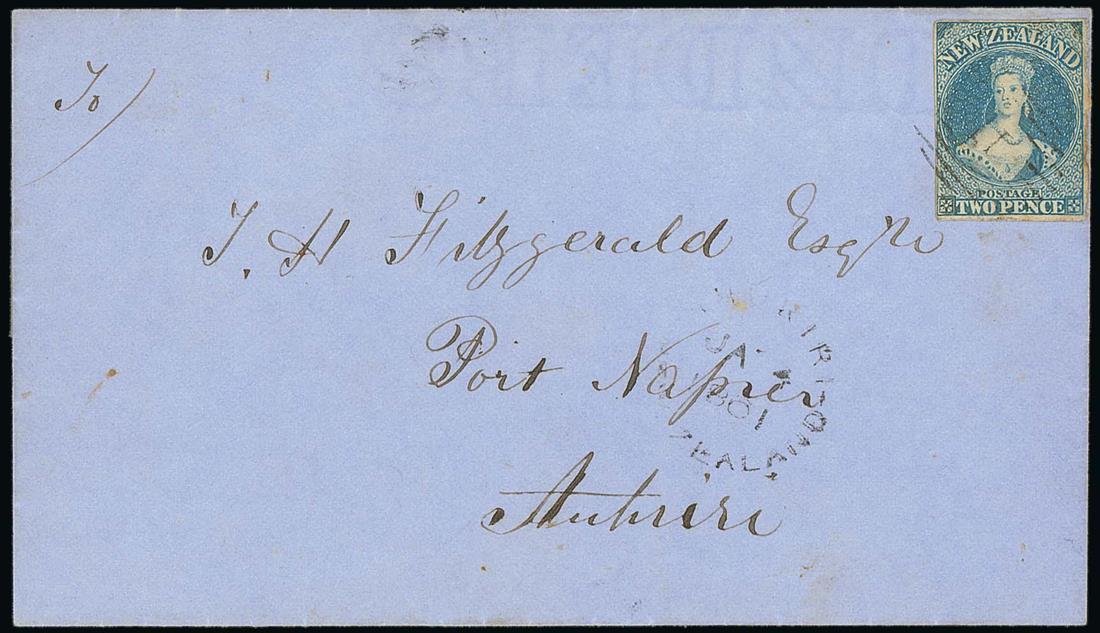 To
NEW ZEALAND
POSTAGE
TWO PENCE
J. H Fitzgerald Esqre
Port Napier
Ahuriri
JA
ZEALAND